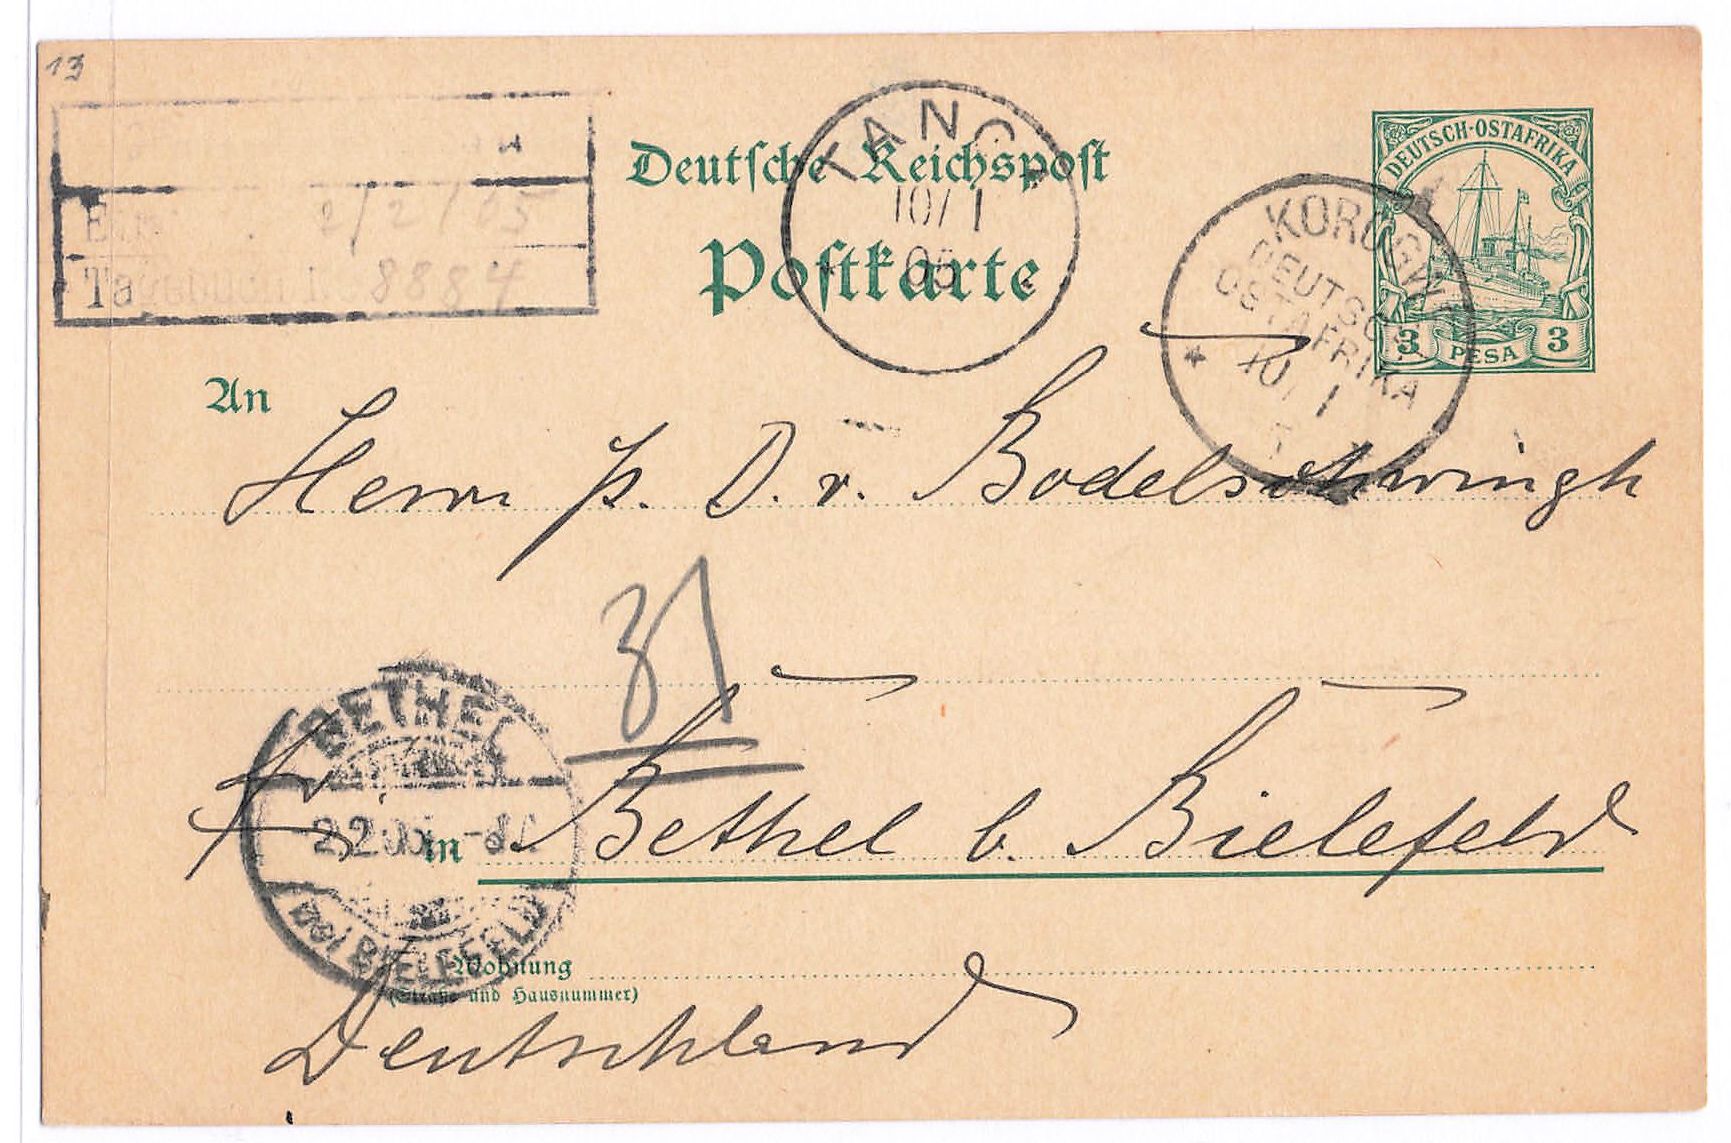 13
Deutsche Reichspost
Postkarte
DEUTSCH-OSTAFRIKA
3 PESA 3
TANG
10/1
05
KOROGWE
DEUTSCH-
OSTAFRIKA
10/1
2/2/05
Tagebuch 8884
An
Herrn P. D. v. Bodelschwingh
31
in Bethel b. Bielefeld
BETHEL
2.2.05.
(bei BIELEFELD)
Wohnung
(Straße und Hausnummer)
Deutschland